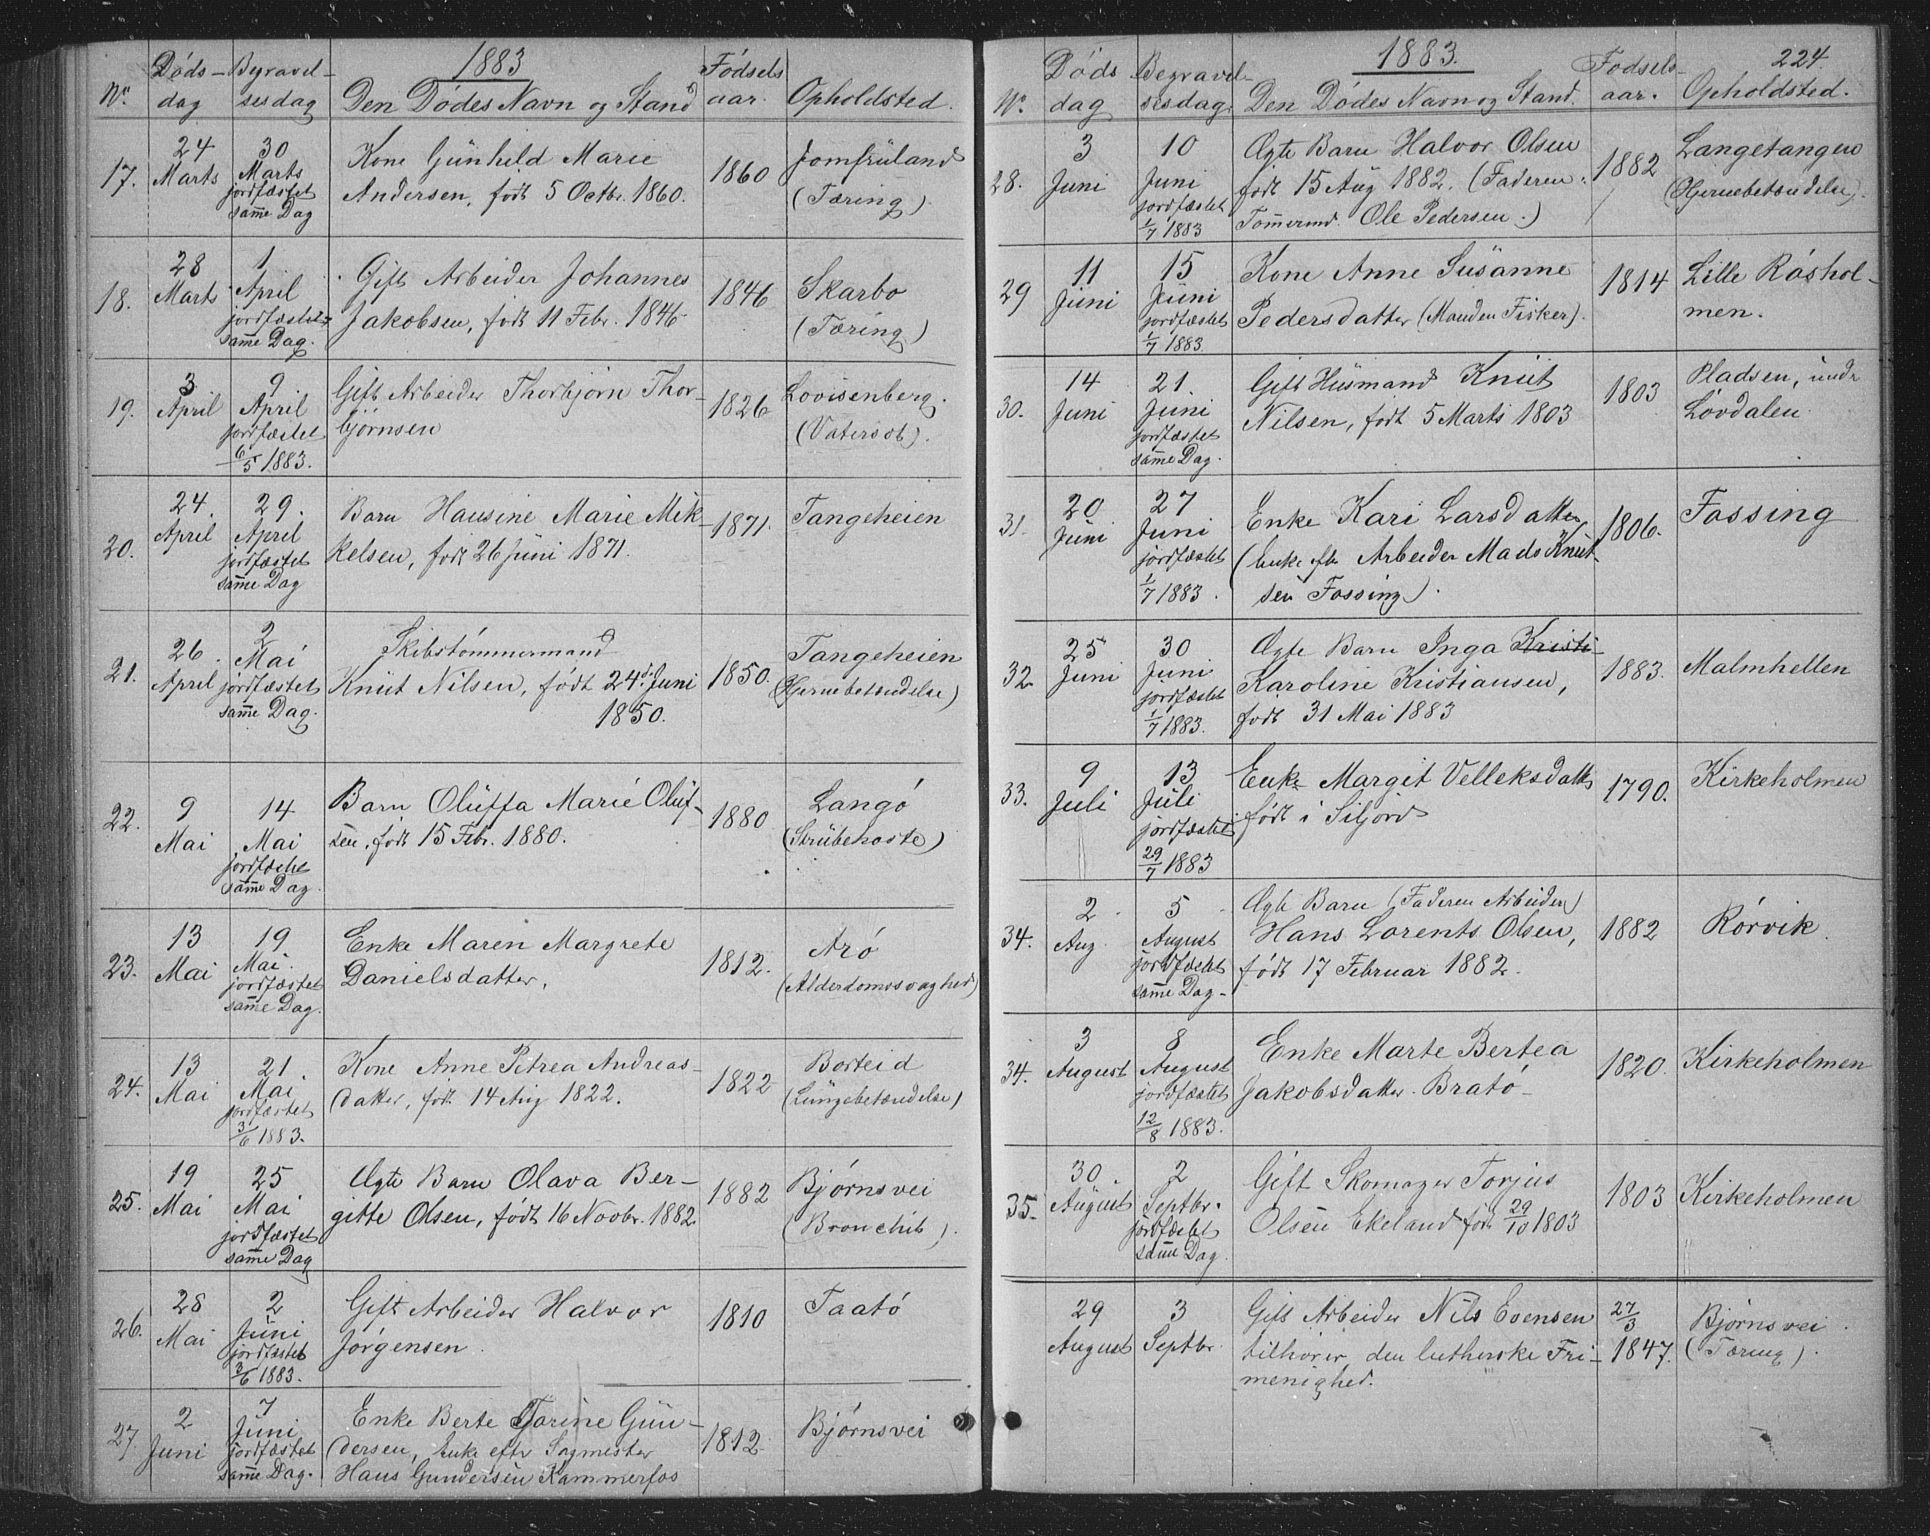 1883
Nr. Døds- dag Begravel- sesdag Den Dødes Navn og Stand Fødsels aar. Opholdsted.
17. 24 Marts 30 Marts jordfæstet samme Dag
Kone Günhild Marie
Andersen, født 5 Octbr. 1860.
1860 Jomfrüland
(Tæring).
18. 28 Marts 1 April jordfæstet samme Dag.
Gift Arbeider Johannes
Jakobsen, født 11 Febr. 1846
1846 Skarbo
(Tæring)
19. 3 April 9. April jordfæstet 6/5 1883.
Gift Arbeider Thorbjørn Thor-
bjørnsen
1826 Lovisenberg.
(Vatersot).
20. 24. April 29. April jordfæstet samme Dag
Barn Hansine Marie Mik-
kelsen, født 26 Jüni 1871.
1871. Tangeheien
21. 26. April 2 Mai jordfæstet samme Dag.
Skibstømmermand
Knüt Nilsen, født 24d Juni
1850.
1850. Tangeheien
(Hjernebetændelse)
22. 9 Mai 14 Mai jordfæstet samme Dag.
Barn Olüffa Marie Olüf-
sen, født 15 Febr. 1880.
1880 Langö
(Strübehoste)
23. 13 Mai 19 Mai. jordfæstet samme Dag.
Enke Maren Margrete
Danielsdatter,
1812. Arö
(Alderdomssvaghed)
24. 13 Mai 21. Mai jordfæstet 3/6 1883.
Kone Anne Petrea Andreas-
datter, født 14 Aüg 1822.
1822 Borteid
(Lüngebetændelse)
25. 19 Mai 25 Mai jordfæstet samme Dag
Ægte Barn Olava Ber-
gitte Olsen, født 16 Novbr. 1882
1882 Bjørnsvei
(Bronchit).
26. 28 Mai 2 Jüni jordfæstet 3/6 1883.
Gift Arbeider Halvor
Jørgensen.
1810 Taatö
27. 2 Juni 7 Juni jordfæstet samme Dag.
Enke Berte Tarine Gün-
dersen, Enke efter Sagmester
Hans Gundersen Kammerfos
1812. Bjørnsvei
1883. 224.
Nr. Døds dag Begravel- sesdag Den Dødes Navn og Stand. Fødsels- aar. Opholdsted.
28. 3 Juni 10 Juni jordfæstet 1/7 1883
Ægte Barn Halvor Olsen
født 15 Aug 1882. (Faderen
Tømmermd. Ole Pedersen.)
1882 Langetangen
(Hjernebetændelse).
29 11 Jüni 15 Jüni jordfæstet 1/7 1883.
Kone Anne Süsanne
Pedersdatter (Manden Fisker).
1814 Lille Røshol-
men.
30. 14 Juni 21. Juni jordfæstet samme Dag.
Gift Hüsmand Knüt
Nilsen, født 5 Marts 1803
1803 Pladsen, under
Løvdalen.
31. 20 Juni 27 Juni jordfæstet 1/7 1883.
Enke Kari Larsdatter
(Enke efter Arbeider Mads Knut
sen Fossing).
1806. Fossing
32. 25 Juni 30 Juni jordfæstet 1/7 1883.
Ægte Barn Inga Kristi-
Karoline Kristiansen,
født 31 Mai 1883
1883. Malmhellen
33. 9 Juli 13 Juli jordfæstet 29/7 1883
Enke Margit Velleksdatter
født i Siljord
1790. Kirkeholmen
34. 2 Aug. 5 August jordfæstet samme Dag.
Ægte Barn (Faderen Arbeider)
Hans Lorents Olsen,
født 17 Februar 1882.
1882 Rørvik.
34. 3 August 8 August jordfæstet 12/8 1883.
Enke Marte Bertea
Jakobsdatter. Bratö
1820. Kirkeholmen
35. 30. August 2 Septbr. jordfæstet samme Dag.
Gift Skomager Torjus
Olsen Ekeland født 29/10 1803
1803 Kirkeholmen
29 August 3 Septbr.
Gift Arbeider Nils Evensen
tilhører den lutherske Fri-
menighed.
27/3 1847. Bjørnsvei
(Tæring).